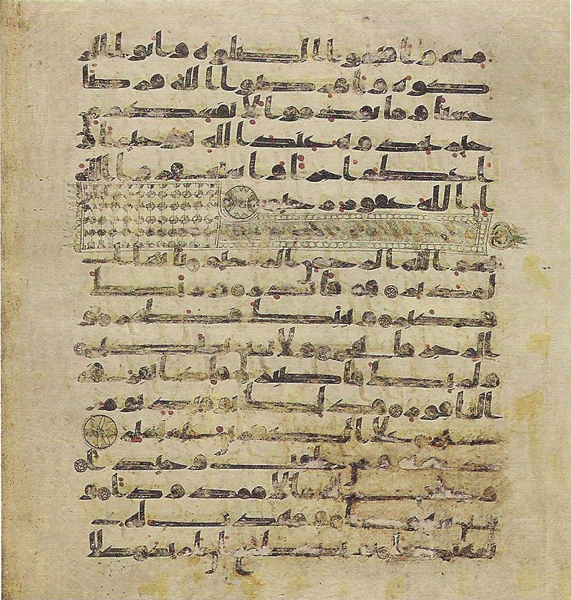 منه واقيموا الصلوه واتوا الز
كوه واقرضوا الله قرضا
حسنا وما تقدموا لانفسكم
من خير تجدوه عند الله هو خيرا و
اعظم اجرا واستغفروا الله
ان الله غفور رحيم
بسم الله الرحمن الرحيم يايها ا
لمدثر قم فانذر وربك
فكبر وثيابك فطهر و
الرجز فاهجر ولا تمنن تستكثر
ولربك فاصبر فاذا نقر في
الناقور فذلك يومئذ يوم
عسير على الكفرين غير يسير
ذرني ومن خلقت وحيدا و
جعلت له مالا ممدودا وبنين
شهودا ومهدت له
تمهيدا ثم يطمع ان ازيد كلا